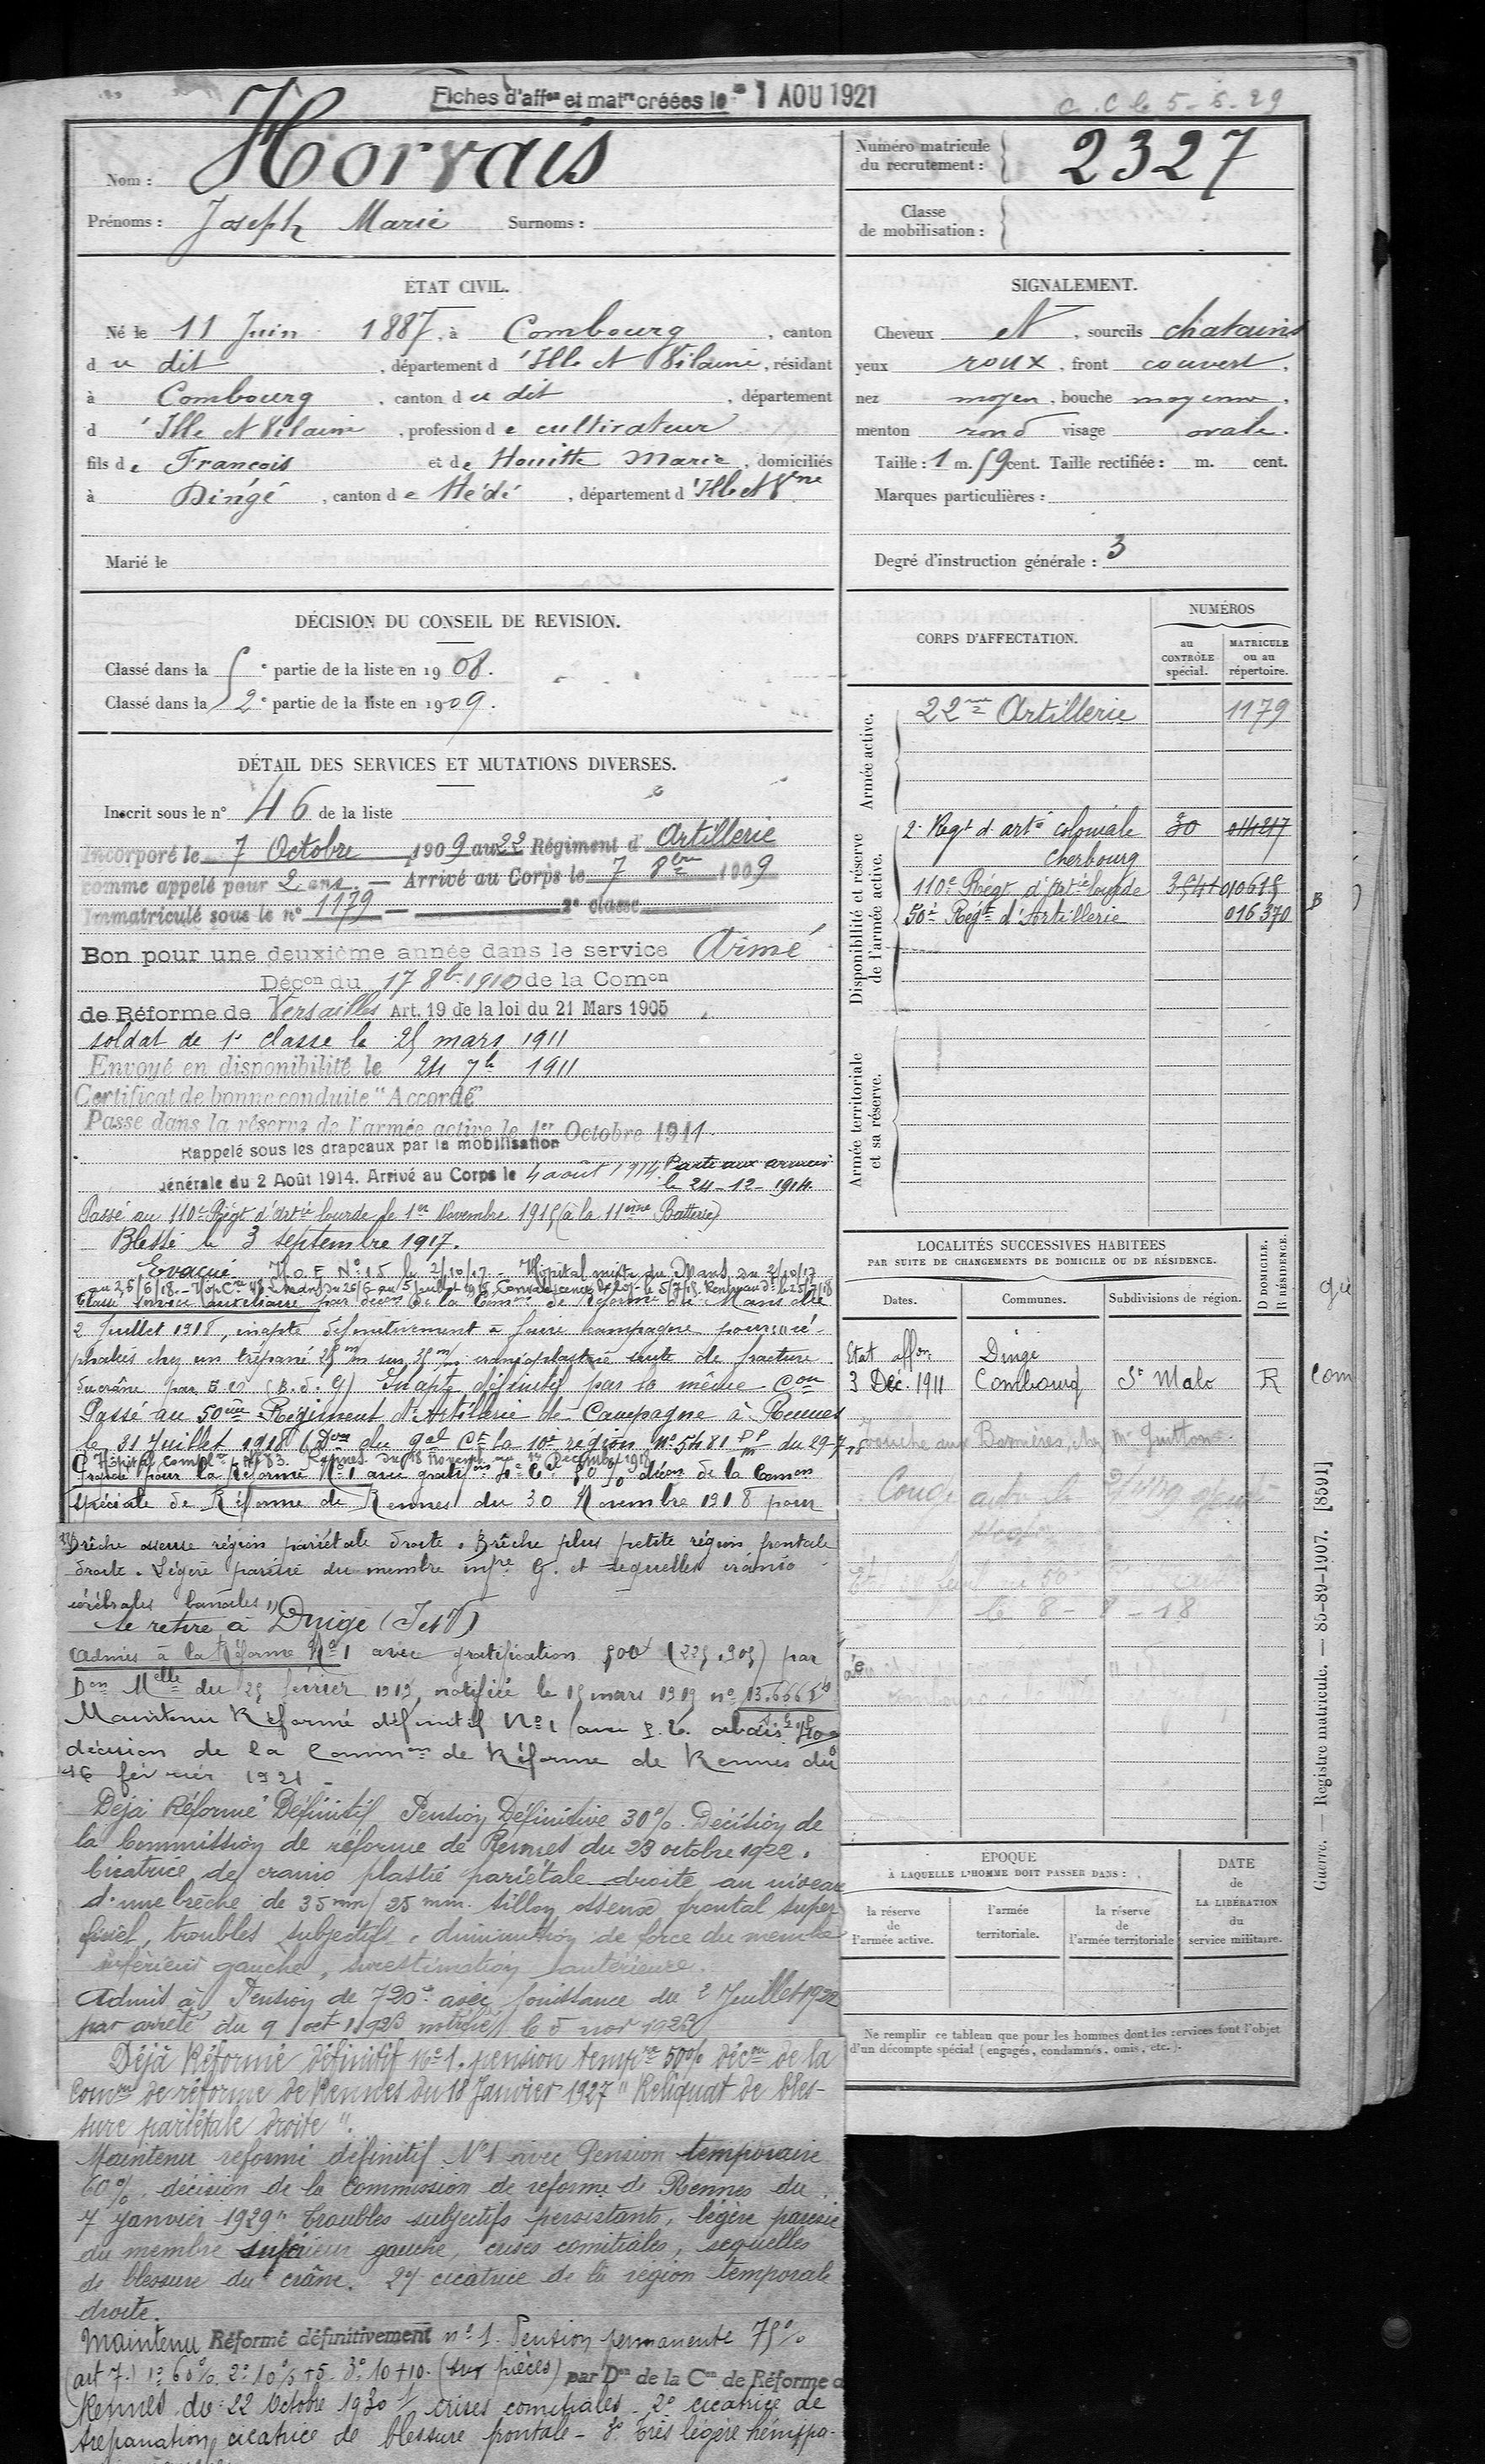 Fiches d'affon et matre créées le 1 AOU 1921
C. C le 5-6-29
Nom : Horvais
Prénoms : Joseph Marie Surnoms :
Numéro matricule du recrutement : 2327
Classe de mobilisation :
ÉTAT CIVIL.
Né le 11 Juin 1887, à Combourg, canton
du dit, département d'Ille et Vilaine, résidant
à Combourg, canton du dit, département
d'Ille et Vilaine, profession de cultivateur
fils de François et de Houitte Marie, domiciliés
à Dingé, canton de Hédé, département d'Ille et Vne
Marié le
SIGNALEMENT.
Cheveux et, sourcils chatains
yeux roux, front couvert,
nez moyen, bouche moyenne,
menton rond visage ovale.
Taille : 1 m. 59 cent. Taille rectifiée : m. cent.
Marques particulières :
Degré d'instruction générale : 3
DÉCISION DU CONSEIL DE REVISION.
Classé dans la e partie de la liste en 1908.
Classé dans la 2e partie de la liste en 1909.
DÉTAIL DES SERVICES ET MUTATIONS DIVERSES.
Inscrit sous le n° 46 de la liste
Incorporé le 7 Octobre 1909 au 22 Régiment d'Artillerie
comme appelé pour 2 ans. — Arrivé au Corps le 7 8bre 1909
Immatriculé sous le n° 1179 — 2e classe
Bon pour une deuxième année dans le service Armé
Décon du 17 8b 1910 de la Comon
de Réforme de Versailles Art. 19 de la loi du 21 Mars 1905
soldat de 1e classe le 25 mars 1911
Envoyé en disponibilité le 24 7b 1911
Certificat de bonne conduite "Accordé"
Passe dans la réserve de l'armée active le 1er Octobre 1911
Rappelé sous les drapeaux par la mobilisation
générale du 2 Août 1914. Arrivé au Corps le 4 août 1914. Parti aux armées
le 24-12-1914
Passé au 110e Régt d'artie lourde le 1er Novembre 1915 (à la 11ème Batterie)
Blessé le 3 septembre 1917.
Evacué H.O.E N° 15 le 2/10/17 - Hôpital mixte du Mans du 2/10/17
au 25/6/18.
Classé service auxiliaire par décon de la Comon de Réforme du Mans du
2 Juillet 1918, inapte définitivement à faire campagne pour
chez un trépané 25 m/m sur 35 m/m cranioplastrie suite de fracture
du crâne par E.O (B. d. G) Inapte définitif par la même Con
Passé au 50ème Régiment d'Artillerie de Campagne à Rennes
le 31 Juillet 1918 (Don du Gal Ct la 10e région N° 5481 du 29-7-18
Hôpital Rennes du 18 Novemb au 14 Décembre 1918
pour la Réforme N° 1 avec gratifon décon de la Comon
spéciale de Réforme de Rennes du 30 Novembre 1918 pour
"Brêche osseuse région pariétale droite. Brêche plus petite région frontale
droite. Légère parésie du membre infre G. et sequelles cranio-
cérébrales banales"
Se retire à Dingé (I et V)
Admis à la Réforme N° 1 avec gratification 500f (225.905) par
Don Melle du 25 février 1919, notifiée le 15 mars 1919 n° 13.666
Maintenu Réformé définitif N° 1 40%
décision de la Common de Réforme de Rennes du
16 février 1921 -
Déjà Réformé Définitif Pension Définitive 30%. Décision de
la Commission de réforme de Rennes du 23 octobre 1922.
Cicatrice de cranio plastié pariétale droite au niveau
d'une brêche de 35mm/25mm. sillon osseux frontal super
ficiel, troubles subjectifs, diminution de force du membre
inférieur gauche, surestimation antérieure.
Admis à Pension de 720f avec jouissance du 2 Juillet 1922
par arrêté du 9 oct 1923 notifié le 5 nov 1923
Déjà Réformé définitif n° 1. pension tempre 50% décon de la
Comon de réforme de Rennes du 18 Janvier 1927 "Reliquat de bles-
sure pariétale droite".
Maintenu reformé définitif N° 1 avec Pension temporaire
60% décision de la Commission de reforme de Rennes du
7 Janvier 1929 "troubles subjectifs persistants, légère parésie
du membre supérieur gauche, crises comitiales, sequelles
de blessure du crâne. 2°/ cicatrice de la région temporale
droite.
Maintenu Réformé définitivement n° 1. Pension permanente 75%
(art 7.) 1° 60% 2° 10% +5. 3° 10+10. (sur pièces) par Don de la Con de Réforme d
Rennes du 22 Octobre 1930 1/ crises comitiales - 2° cicatrice de
trépanation, cicatrice de blessure frontale - 3° très légère hémipa-
CORPS D'AFFECTATION.
NUMÉROS
au CONTRÔLE spécial.
MATRICULE ou au répertoire.
Armée active.
22me Artillerie 1179
Disponibilité et réserve de l'armée active.
2e Regt d'artie coloniale 30 014217
Cherbourg
110e Régt d'Artie lourde 3541 010615
50e Régt d'Artillerie 016370
B
Armée territoriale et sa réserve.
LOCALITÉS SUCCESSIVES HABITÉES
PAR SUITE DE CHANGEMENTS DE DOMICILE OU DE RÉSIDENCE.
D DOMICILE. R RÉSIDENCE.
Dates. Communes. Subdivisions de région.
Etat affon Dingé
3 Déc. 1911 Combourg St Malo R
le 8-8-18
ÉPOQUE
À LAQUELLE L'HOMME DOIT PASSER DANS :
la réserve de l'armée active.
l'armée territoriale.
la réserve de l'armée territoriale
DATE de LA LIBÉRATION du service militaire.
Ne remplir ce tableau que pour les hommes dont les services font l'objet
d'un décompte spécial (engagés, condamnés, omis, etc.).
Guerre. — Registre matricule. — 85-89-1907. [8591]
Com